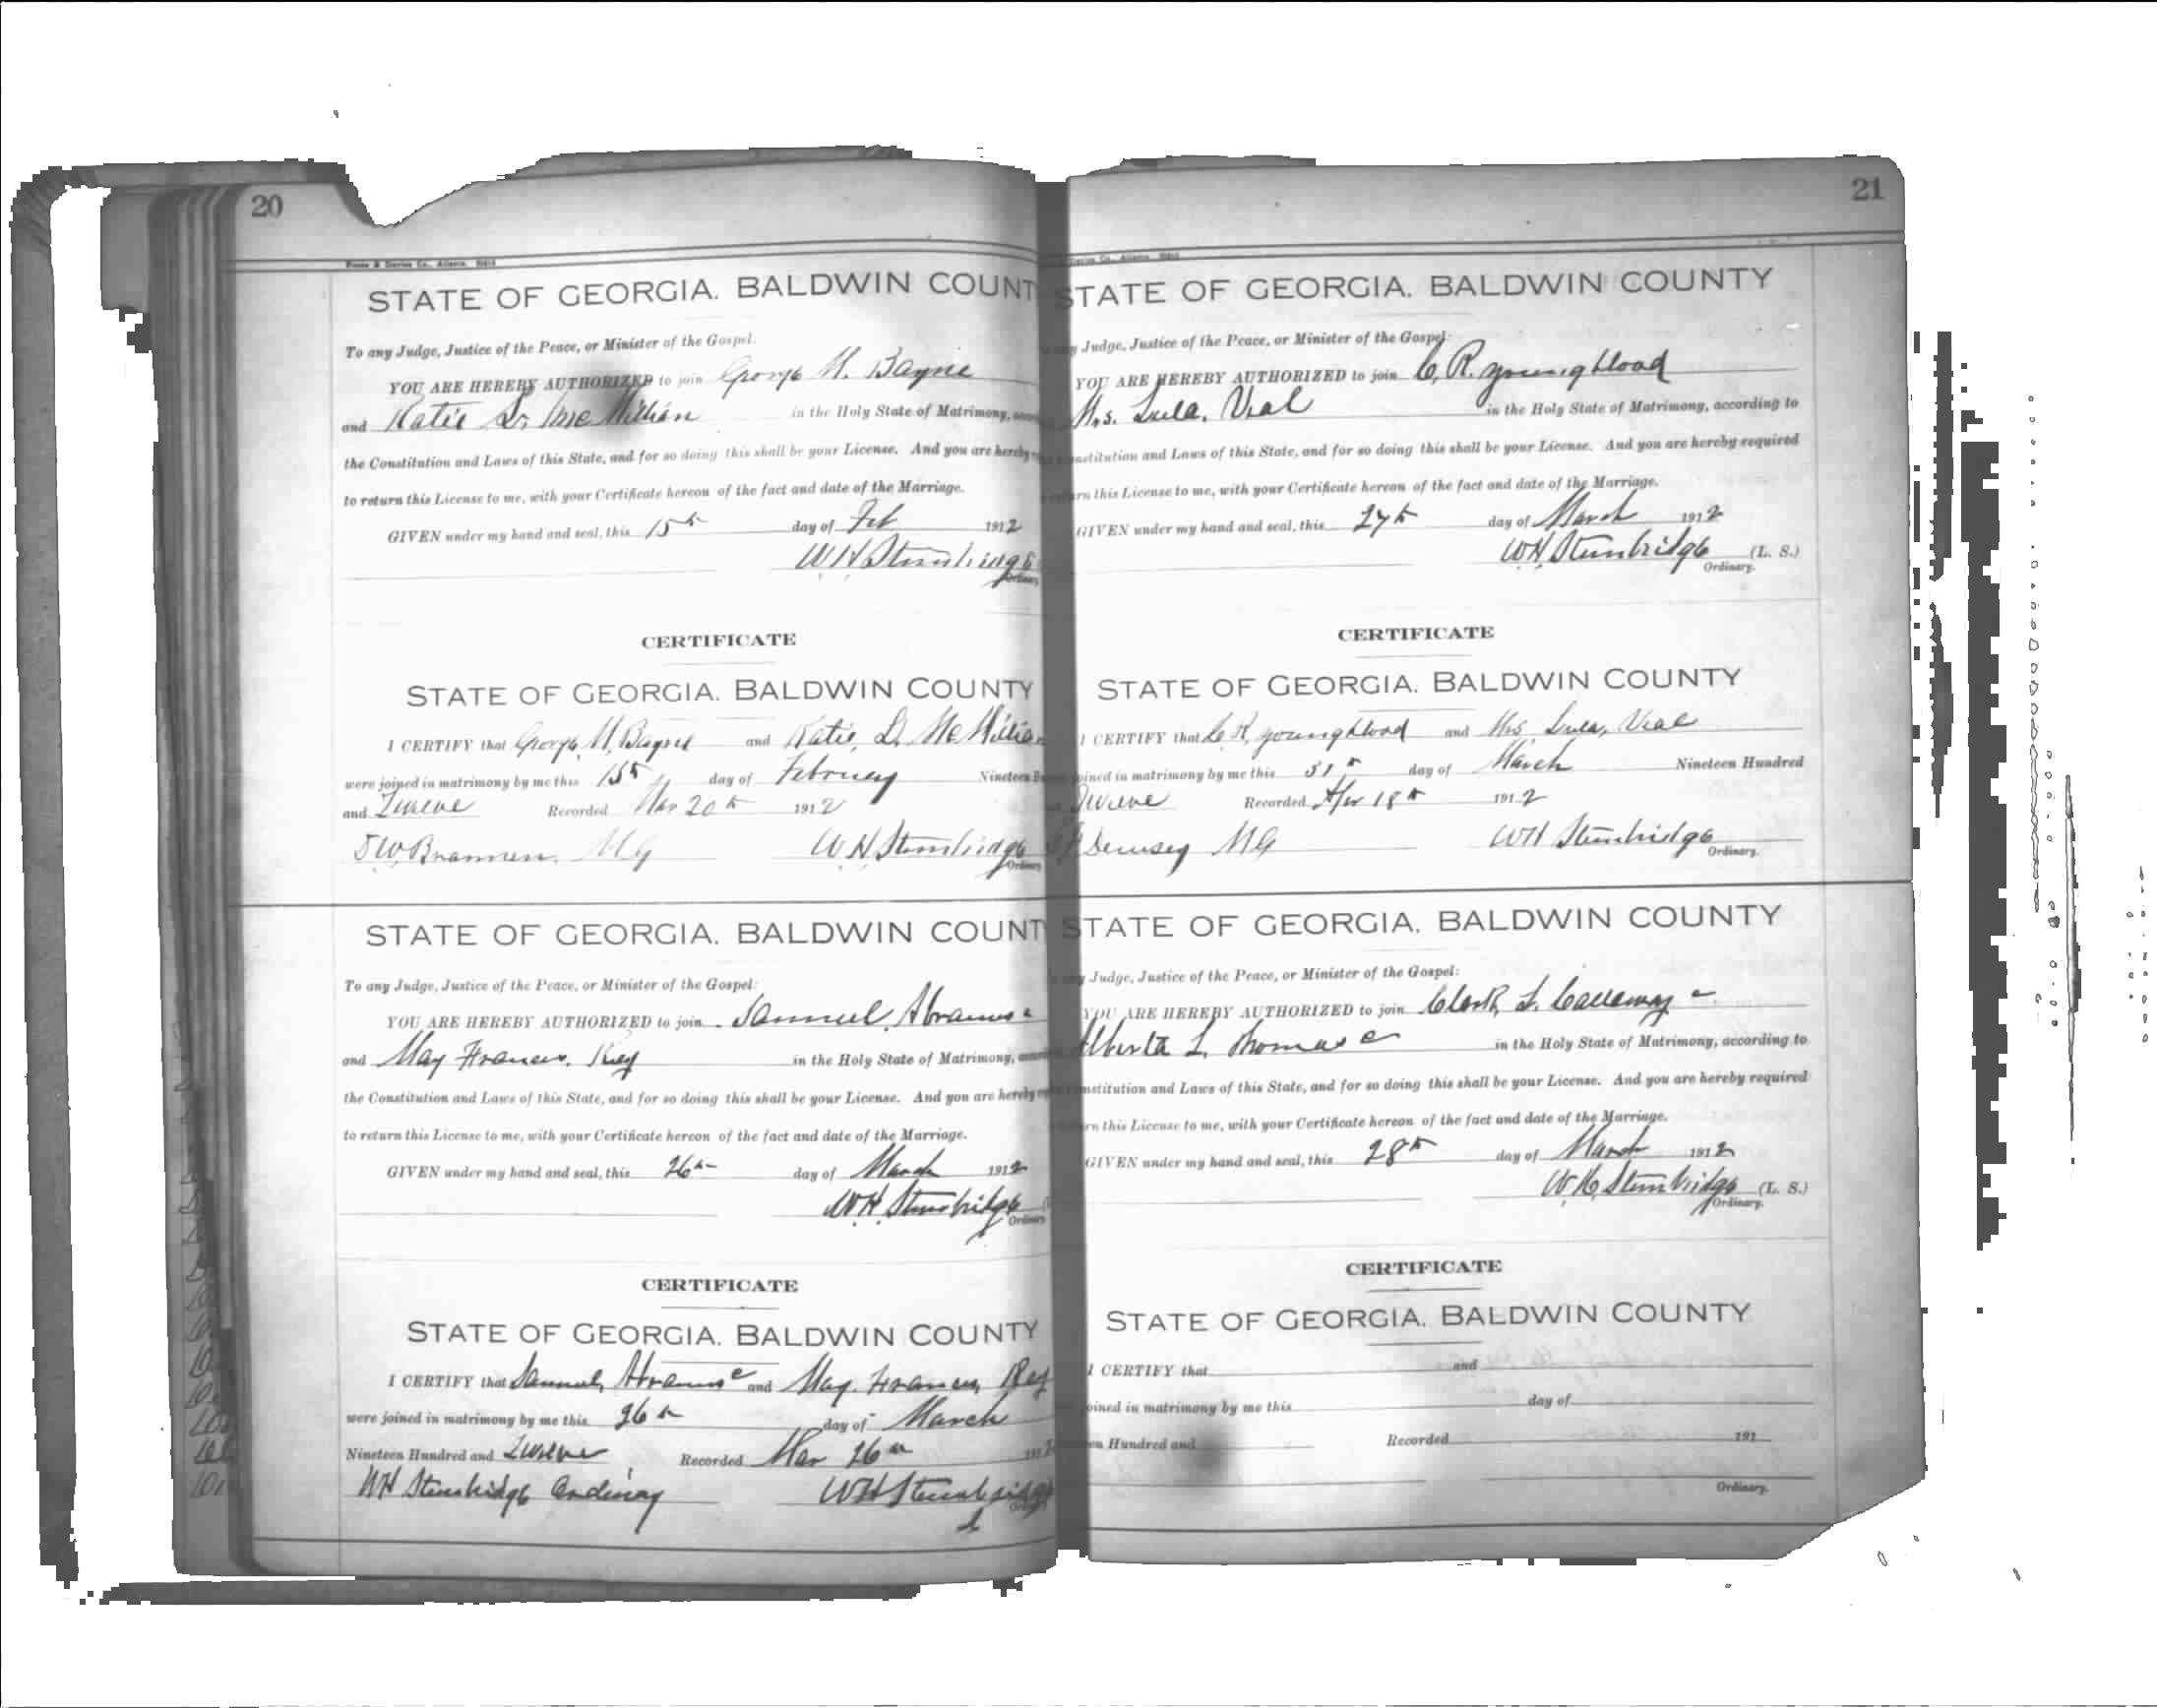 20
STATE OF GEORGIA. BALDWIN COUNT
To any Judge, Justice of the Peace, or Minister of the Gospel:
YOU ARE HEREBY AUTHORIZED to join George H. Bayne
and Katie L. McMillian in the Holy State of Matrimony,
the Constitution and Laws of this State, and for so doing this shall be your License. And you are hereby
to return this License to me, with your Certificate hereon of the fact and date of the Marriage.
GIVEN under my hand and seal, this 15th day of Feb 1912
W H Stembridge
Ordinary
CERTIFICATE
STATE OF GEORGIA. BALDWIN COUNTY
I CERTIFY that George H. Bayne and Katie, L. McMillian
were joined in matrimony by me this 15th day of February Nineteen
and Twelve Recorded Mar 20th 1912
J.W. Brannen. M.G W H Stembridge
Ordinary
STATE OF GEORGIA. BALDWIN COUNT
To any Judge, Justice of the Peace, or Minister of the Gospel:
YOU ARE HEREBY AUTHORIZED to join Samuel Abrams c
and May Frances. Key in the Holy State of Matrimony,
the Constitution and Laws of this State, and for so doing this shall be your License. And you are hereby
to return this License to me, with your Certificate hereon of the fact and date of the Marriage.
GIVEN under my hand and seal, this 26th day of March 1912
W.H. Stembridge
Ordinary
CERTIFICATE
STATE OF GEORGIA. BALDWIN COUNTY
I CERTIFY that Samuel, Abrams c and May. Frances, Key
were joined in matrimony by me this 26th day of March
Nineteen Hundred and Twelve Recorded Mar 26th 191
WH Stembridge Ordinary WH Stembridge
21
STATE OF GEORGIA. BALDWIN COUNTY
Judge, Justice of the Peace, or Minister of the Gospel:
YOU ARE HEREBY AUTHORIZED to join C, R. Youngblood
Mrs. Lula. Vial in the Holy State of Matrimony, according to
Constitution and Laws of this State, and for so doing this shall be your License. And you are hereby required
this License to me, with your Certificate hereon of the fact and date of the Marriage.
GIVEN under my hand and seal, this 27th day of March 1912
W.H. Stembridge (L. S.)
Ordinary.
CERTIFICATE
STATE OF GEORGIA. BALDWIN COUNTY
I CERTIFY that C R, Youngblood and Mrs Lula, Vial
joined in matrimony by me this 31st day of March Nineteen Hundred
Twelve Recorded Apr 18th 1912
Demsey MG WH Stembridge
Ordinary.
STATE OF GEORGIA. BALDWIN COUNTY
Judge, Justice of the Peace, or Minister of the Gospel:
YOU ARE HEREBY AUTHORIZED to join Clark, L. Callaway c
Alberta L. Thomas c in the Holy State of Matrimony, according to
Constitution and Laws of this State, and for so doing this shall be your License. And you are hereby required
this License to me, with your Certificate hereon of the fact and date of the Marriage.
GIVEN under my hand and seal, this 28th day of March 1912
W.H. Stembridge (L. S.)
Ordinary.
CERTIFICATE
STATE OF GEORGIA. BALDWIN COUNTY
I CERTIFY that and
joined in matrimony by me this day of
Hundred and Recorded 191
Ordinary.